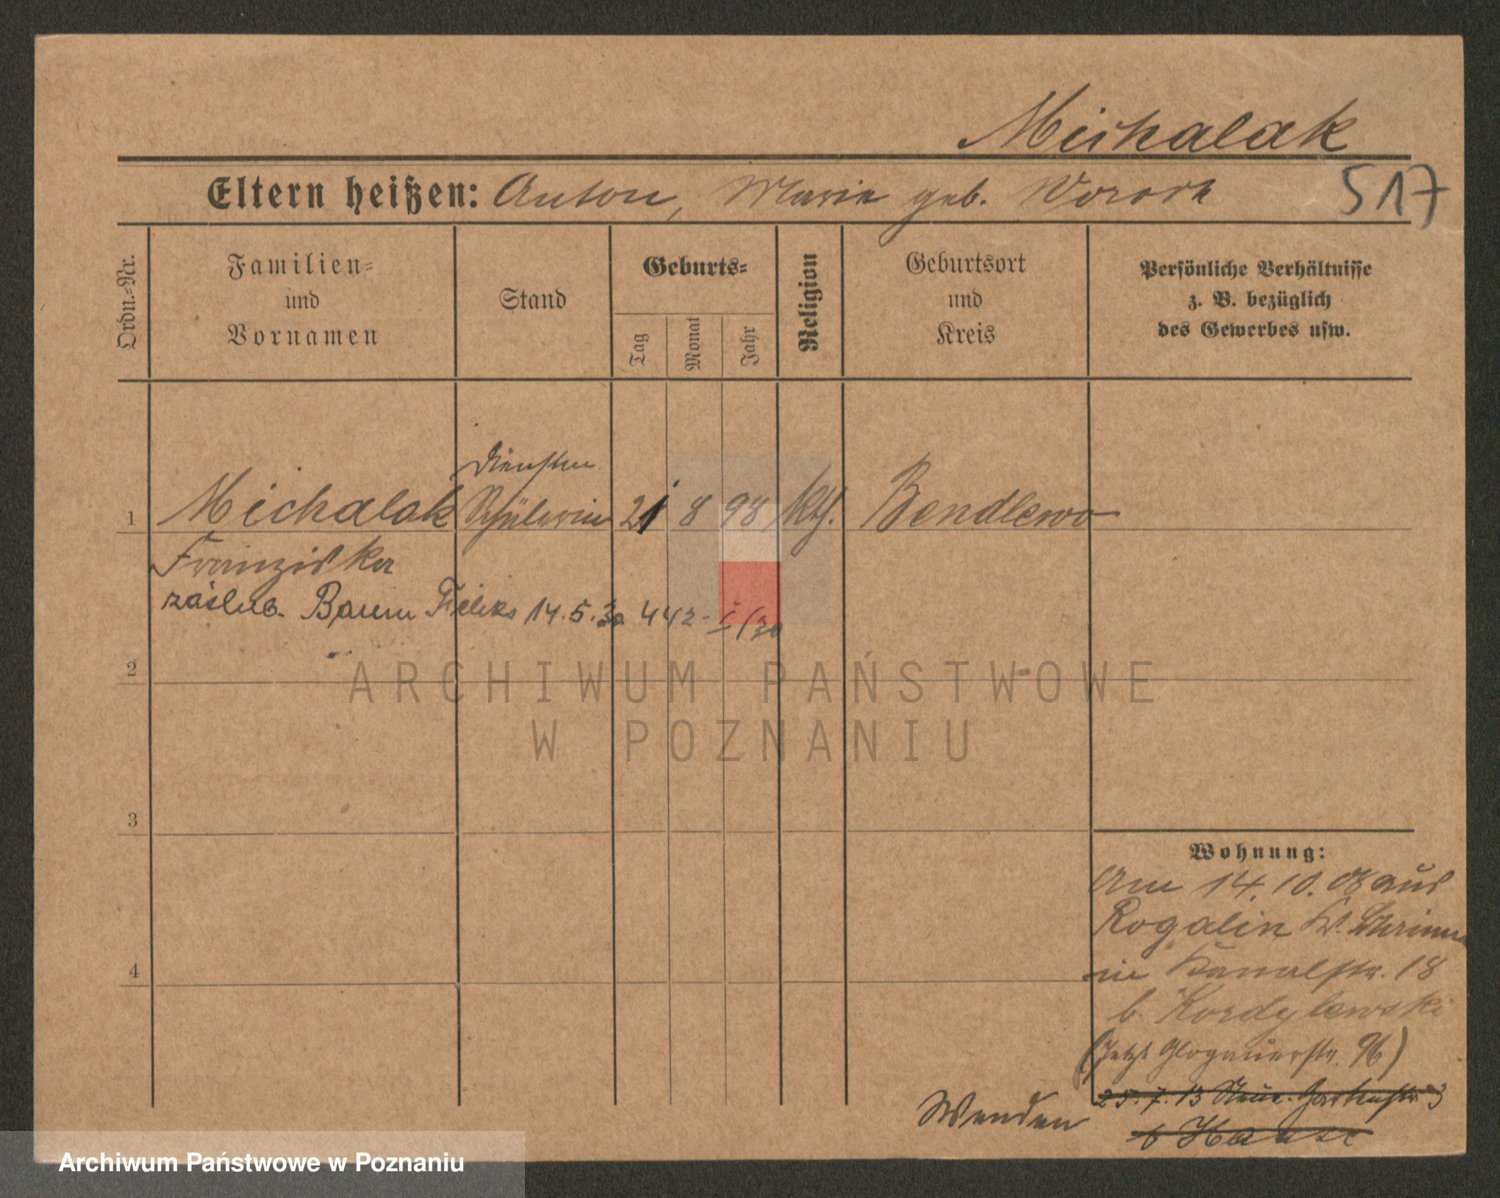 Michalak
Eltern heißen: Anton, Marie geb.
517
Ordn.-Nr.
Familien-
und
Vornamen
Stand
Geburts-
Tag
Monat
Jahr
Religion
Geburtsort
und
Kreis
Persönliche Verhältnisse
z. B. bezüglich
des Gewerbes usw.
1
Michalak
Schülerin
21
8
98
kth.
Bendlewo
Franziska
zaślub. Baum Feliks 14.5.30 442-I/30
2
3
4
Wohnung:
Am 14.10. aus
Rogalin K. Schrimm
in Kanalstr. 18
b. Kordylewski
(jetzt Glogauerstr. 96)
25.7.13 Gartenstr. 3
b
Wenden
ARCHIWUM PAŃSTWOWE
W POZNANIU
Archiwum Państwowe w Poznaniu